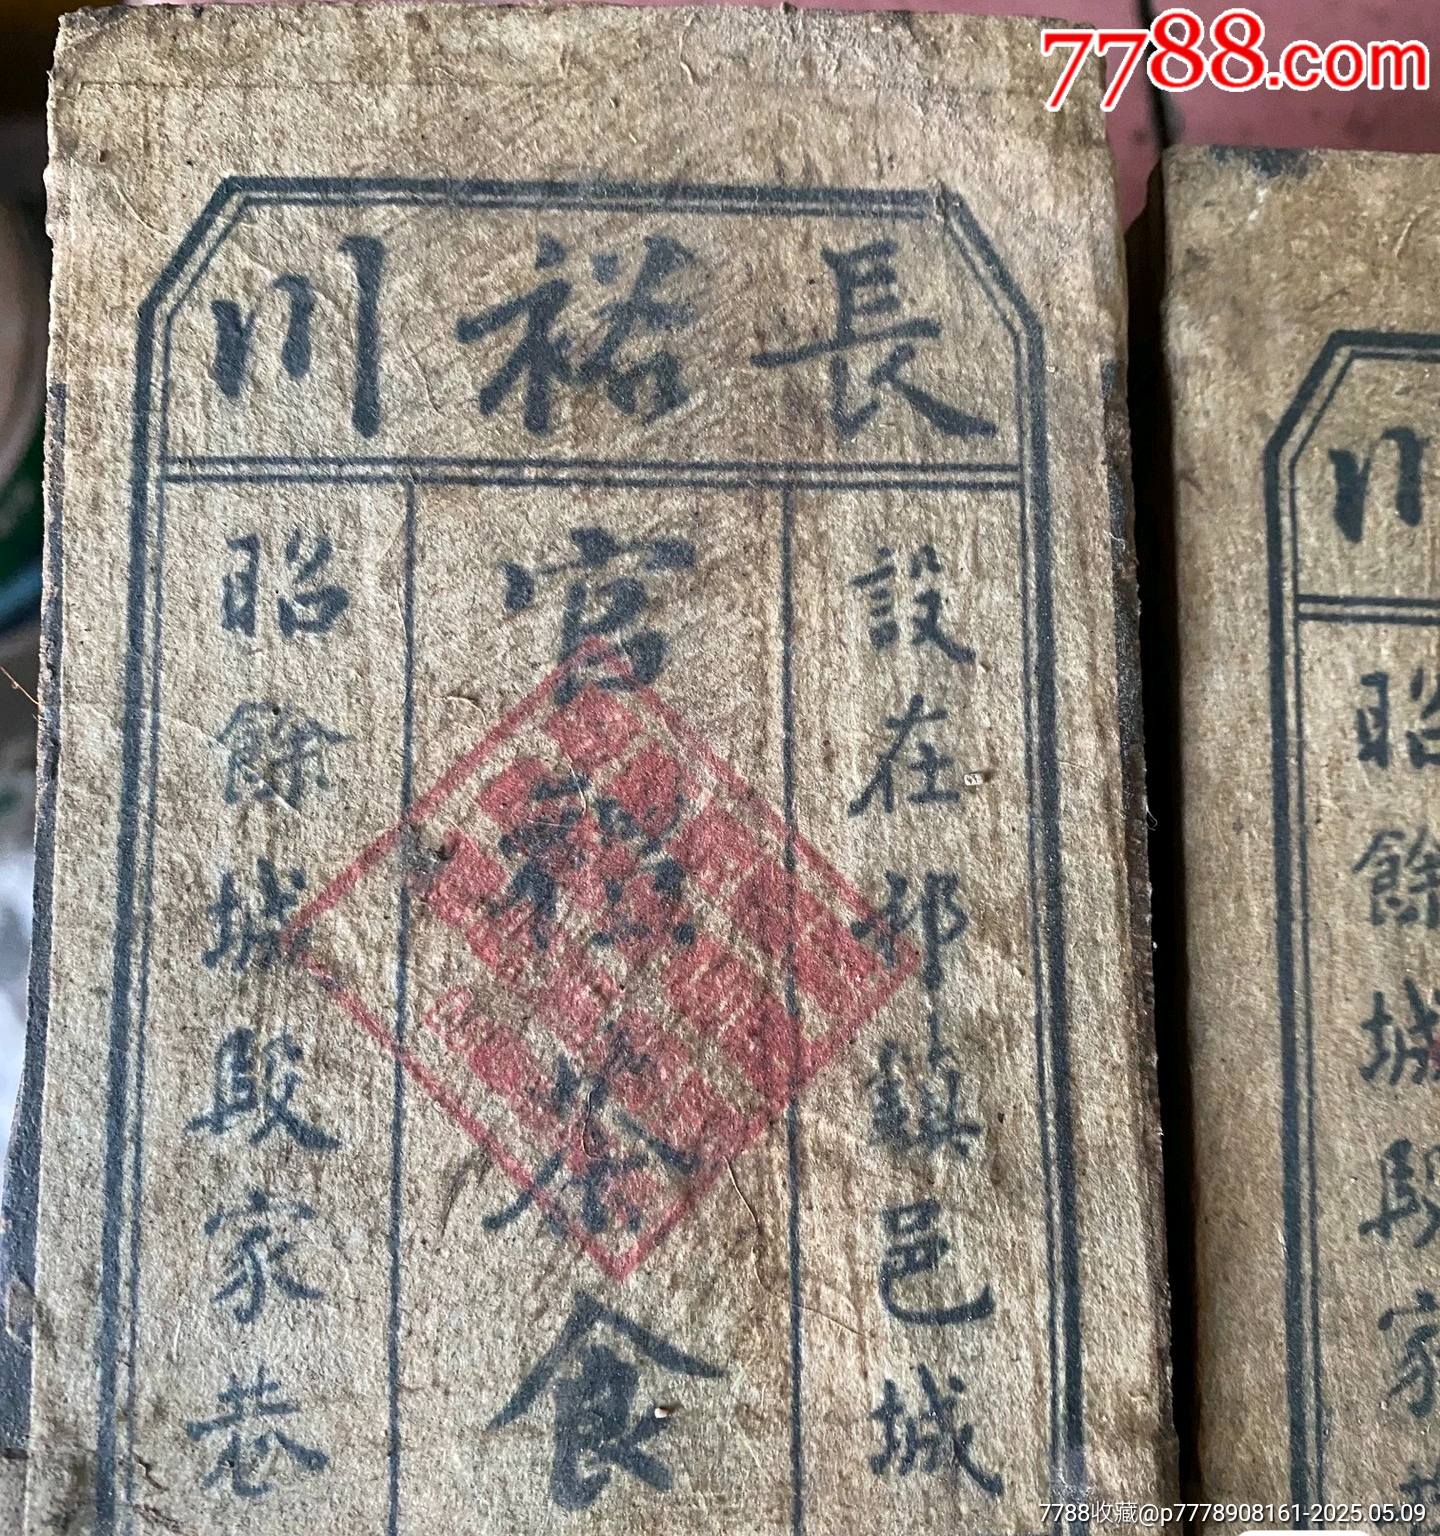 7788.com
長裕川
設在祁鎮邑城
官禮茶食
昭餘城段家巷
川
昭餘城段家
7788收藏@p7778908161-2025.05.09